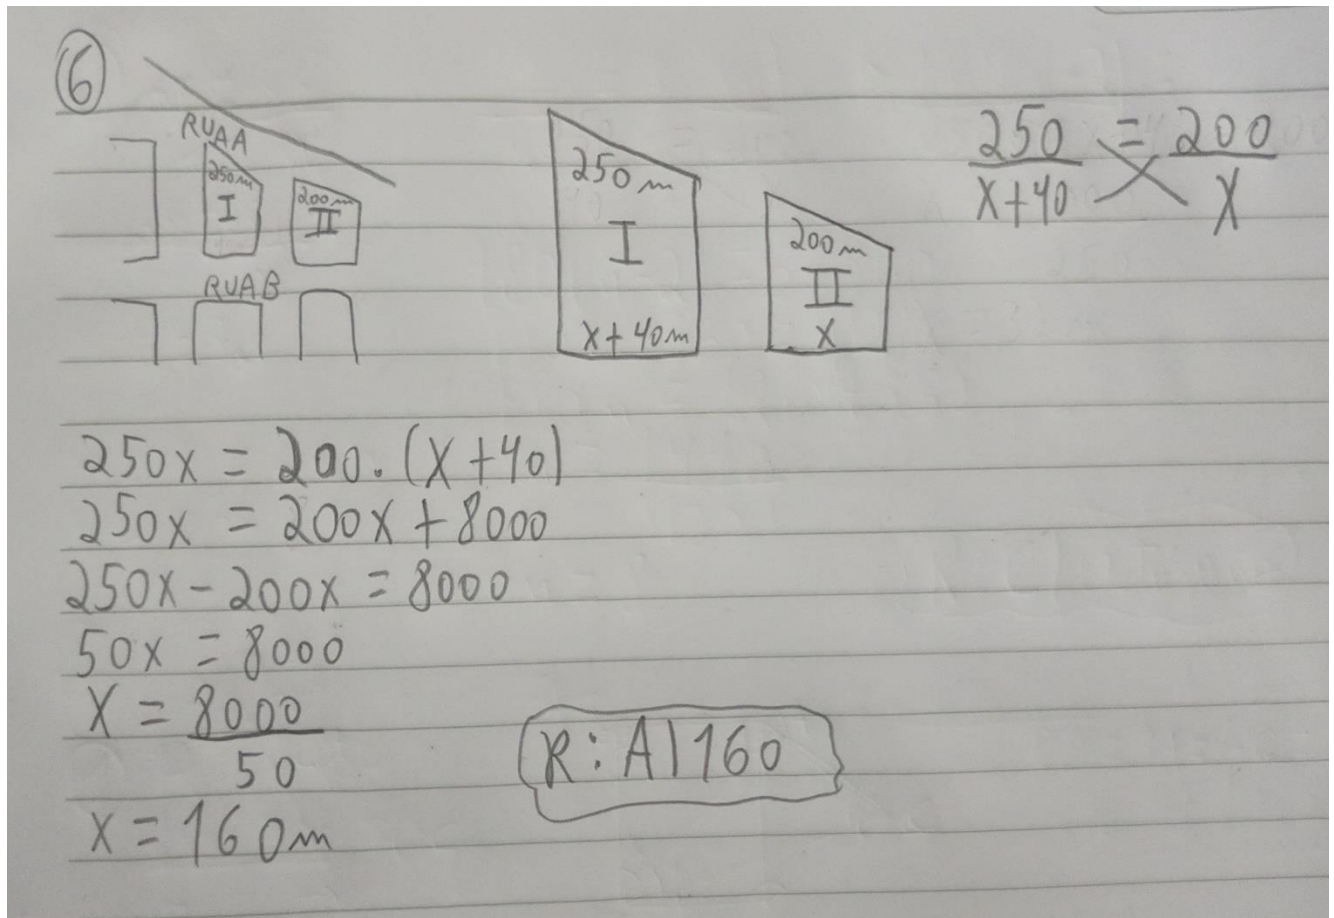 6
RUA A
250m
I
200m
II
RUA B
250m
I
x+40m
200m
II
x
250 = 200
x+40 x
250x = 200.(x+40)
250x = 200x + 8000
250x - 200x = 8000
50x = 8000
x = 8000
50
x = 160m
R: A) 160